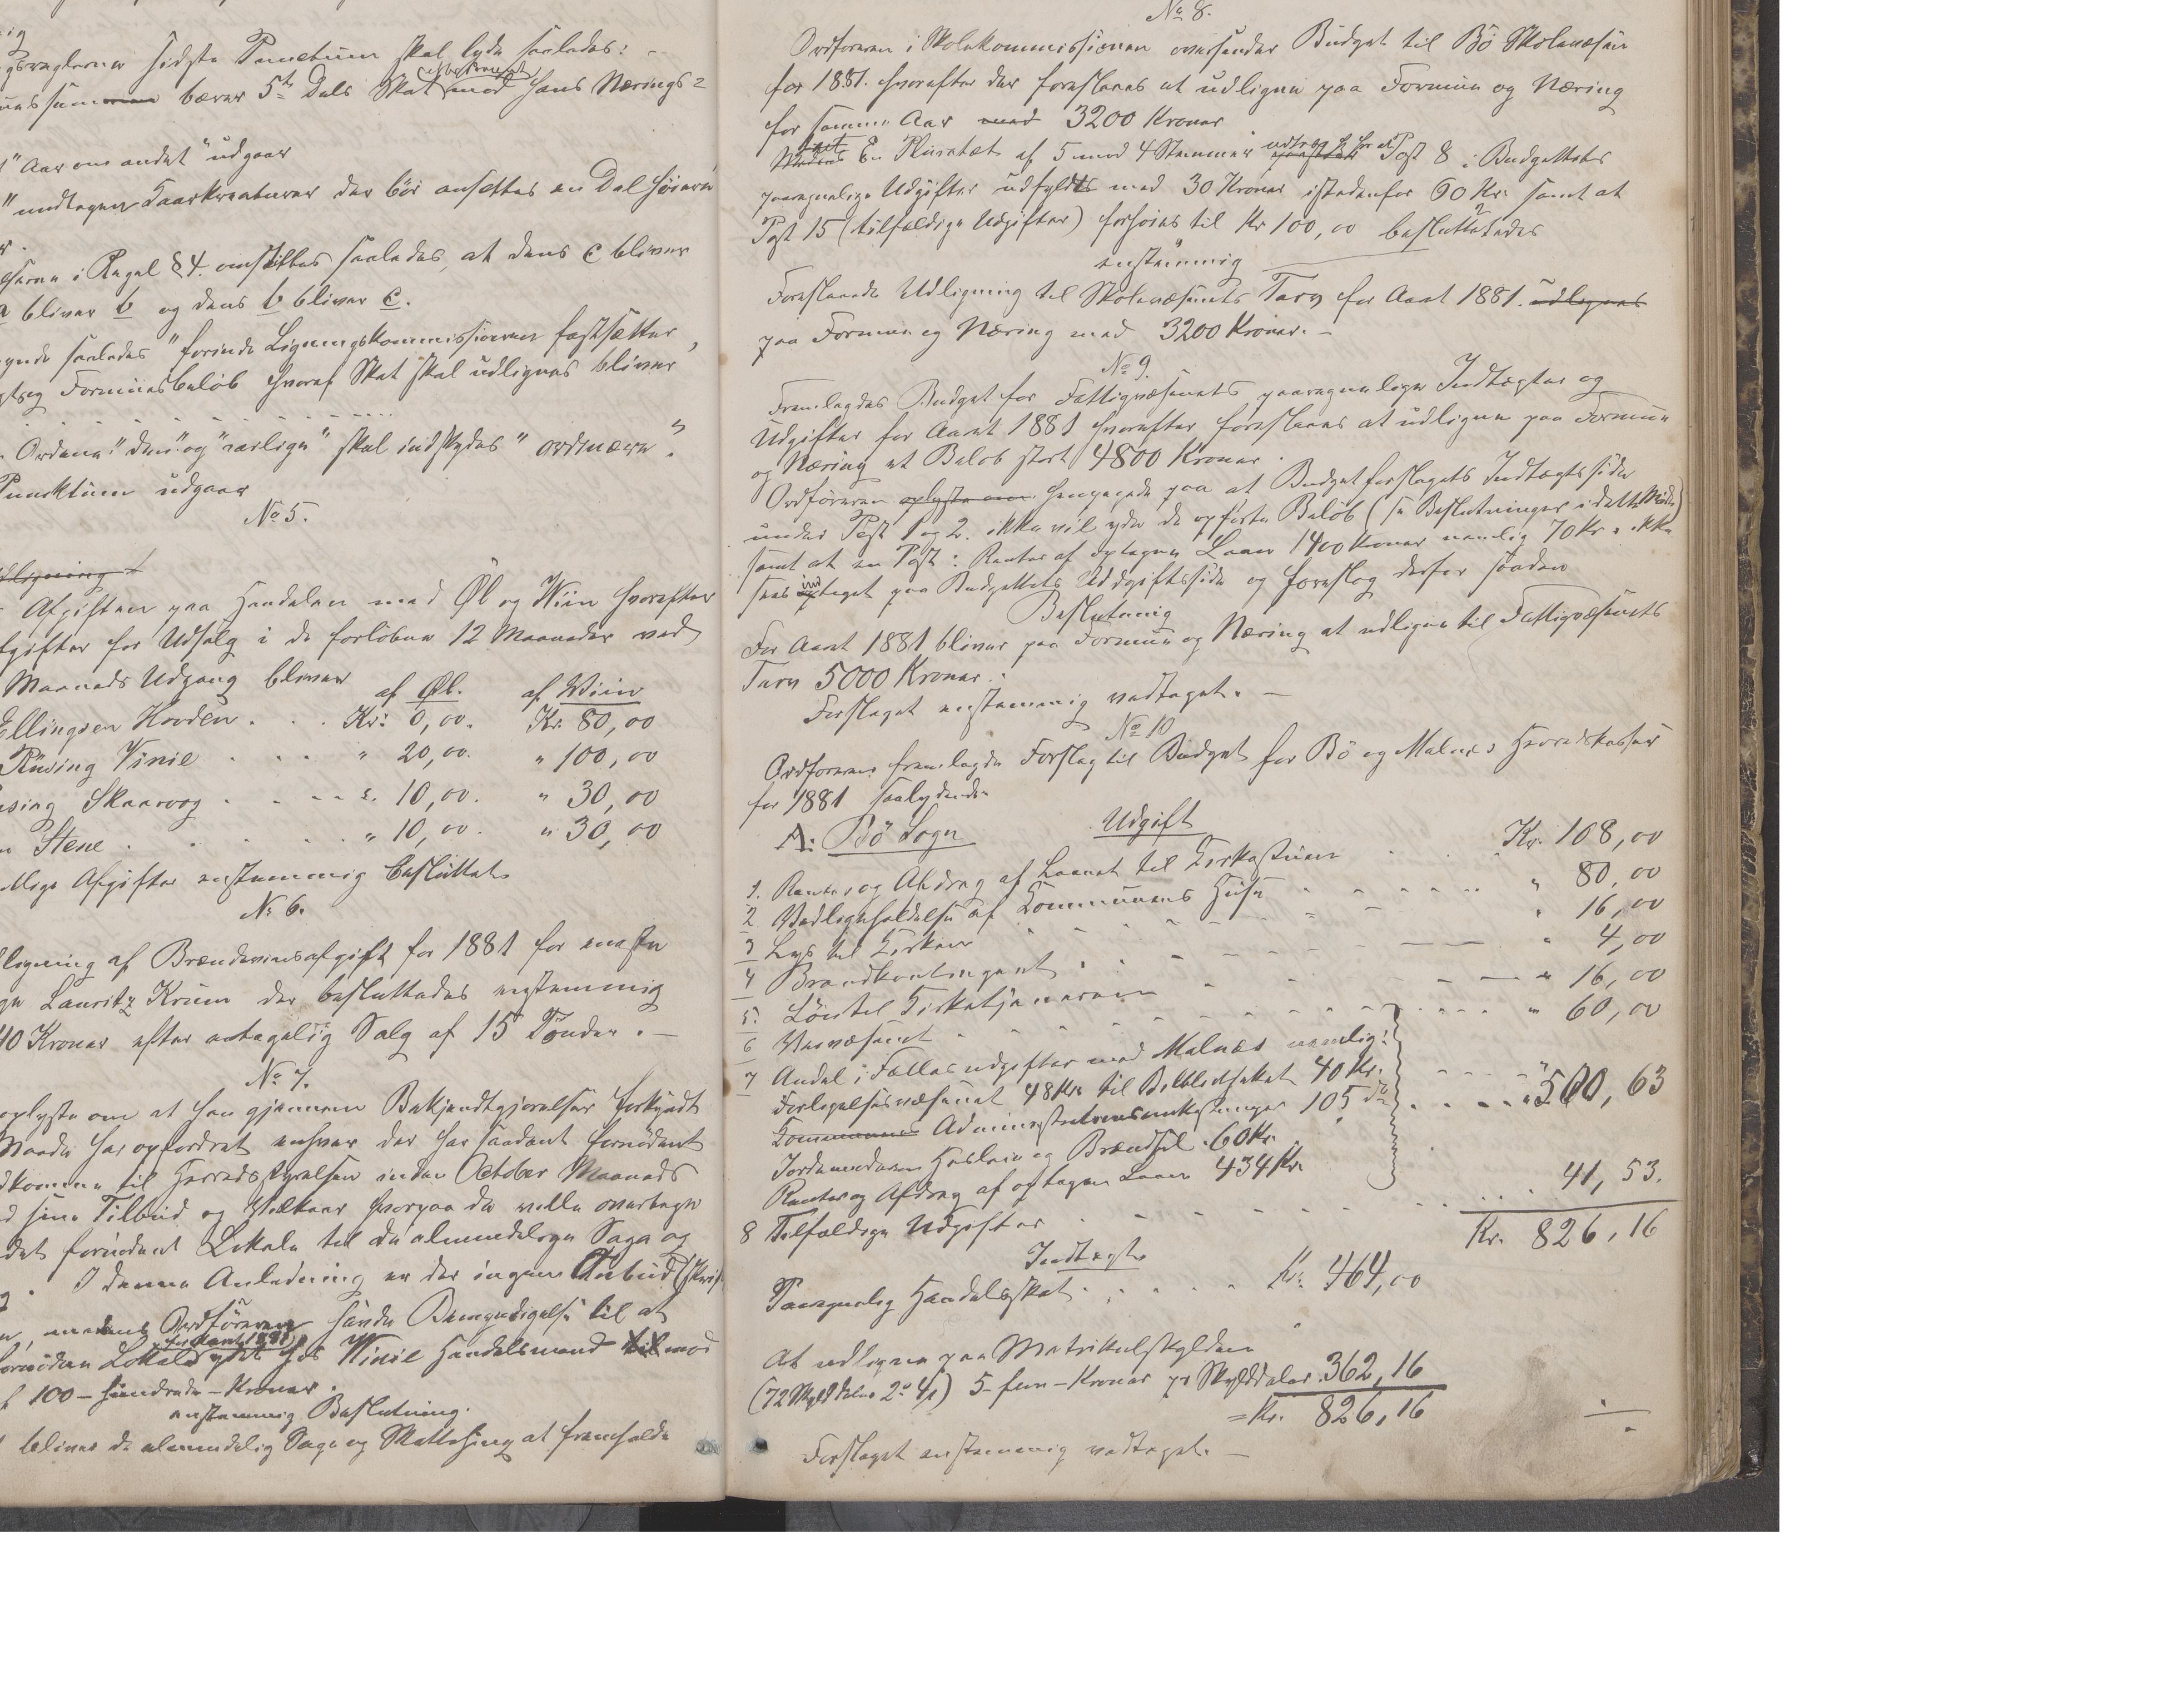 sidste Punctum skal lyde saaledes: -
bærer 5te Dels Skat mod hans Nærings=
" Aar om andet " udgaar
" undtagen Kaarkreaturer der bör ansettes en Del höiere
i Regel § 4. omskiftes saaledes, at dens c bliver
a bliver b og dens b bliver c.
saaledes " forinde Ligningskommissionen fastsætter
Formuesbelöb hvoraf Skat skal udlignes bliver
Ordene " den " og " aarlige " skal indskydes " ordinære ".
Puncktum udgaar
No 5.
Afgiften paa Handelen med Øl og Wiin hvorefter
for Udsalg i de forlöbne 12 Maaneder ved
Maaneds Udgang bliver
af Øl. af Wiin
Ellingsen Hovden . . . Kr: 0,00. Kr. 80,00
Rüsing Vinie . . . " 20,00. " 100,00
Skaarvog . . . " 10,00. " 30,00
Stene . . . " 10,00. " 30,00
Afgifter enstemmig besluttet
No 6.
af Brændevinsafgift for 1881 for eneste
Lauritz Krüm der besluttedes enstemmig
Kroner efter antagelig Salg af 15 Tönder. -
No 7.
oplyste om at han gjennem Bekjendtgjørelser forkyndt
har opfordret enhver der har saadant fornödent
til Herredsstyrelsen inden October Maaneds
sine Tilbud og Vilkaar hvorpaa de ville overtage
fornödent Lokale til de almindelige Sage og
I denne Anledning er der ingen Anbud
Ordföreren sender Bemyndigelse til at
for Aaret 1881
Lokale hos Winie Handelsmand til mod
100 - hundrede - Kroner.
enstemmig Beslutning.
bliver de almindelig Sage og Skatteting at fremholde
No 8.
Ordføreren i Skolekommissionen oversender Budget til Bö Skolevæsen
for 1881. hvorefter der foreslaaes at udligne paa Formue og Næring
for samme Aar med 3200 Kroner
En Pluralitet af 5 mod 4 Stemmer Post 8 i Budgettets
paaregnelige Udgifter udfyldes med 30 Kroner istedenfor 60 Kr. samt at
Post 15 (tilfældige Udgifter) forhøies til Kr 100,00 besluttedes
enstemmig
Foreslaaede Udligning til Skolevæsenets Tarv for Aaret 1881. udlignes
paa Formue og Næring med 3200 Kroner. -
No 9.
Fremlagdes Budget for Fattigvæsenets paaregnelige Indtægter og
Udgifter for Aaret 1881 hvorefter foreslaaes at udligne paa Formue
og Næring et Beløb stort 4800 Kroner.
Ordføreren oplyste om henpegede paa at Budgetforslagets Indtægtsside
under Post 1 og 2. ikke vil yde de opførte Beløb (se Beslutninger i dette Møde)
samt at en Post: Renter af optagen Laan 1400 Kroner nemlig 70 Kr. ikke
sees indtaget paa Budgettets Uddgiftsside og foreslog derfor saadan
Beslutning
For Aaret 1881 bliver paa Formue og Næring at udligne til Fattigvæsenets
Tarv 5000 Kroner.
Forslaget enstemmig vedtaget. -
No 10
Ordføreren fremlagde Forslag til Budget for Bö og Malnes Herredskasser
for 1881 saalydende
A: Bö Sogn Udgift
1. Renter og Afdrag af Laanet til Kirkestuen . . Kr. 108,00
2 Vedligeholdelse af Kommunens Huse . . . " 80,00
3 Lys til Kirken . . . " 16,00
4 Brandkontingent . . . " 4,00
5. Løn til Kirketjeneren . . . " 16,00
6 Veivæsenet . . . " 60,00
7 Andel i Fællesudgifter med Malnes nemlig:
Forligelsesvæsenet 48 Kr. til Biblliothekat 40 Kr.
Kommunens Administrationsomkostninger 105 do . . . " 500,63
Jordemoderen Husleie og Brændsel 60 Kr.
Renter og Afdrag af optagen Laan 434 Kr.
8 Tilfældige Udgifter . . . 41,53.
Kr. 826,16
Indtægt
Paaregnelig Handelsskat . . . Kr. 464,00
At udligne paa Matrikulskylden
(72 Skylddaler 2 " 4/1) 5 - fem - Kroner pr Skylddaler 362,16
= Kr. 826,16
Forslaget enstemmig vedtaget. -